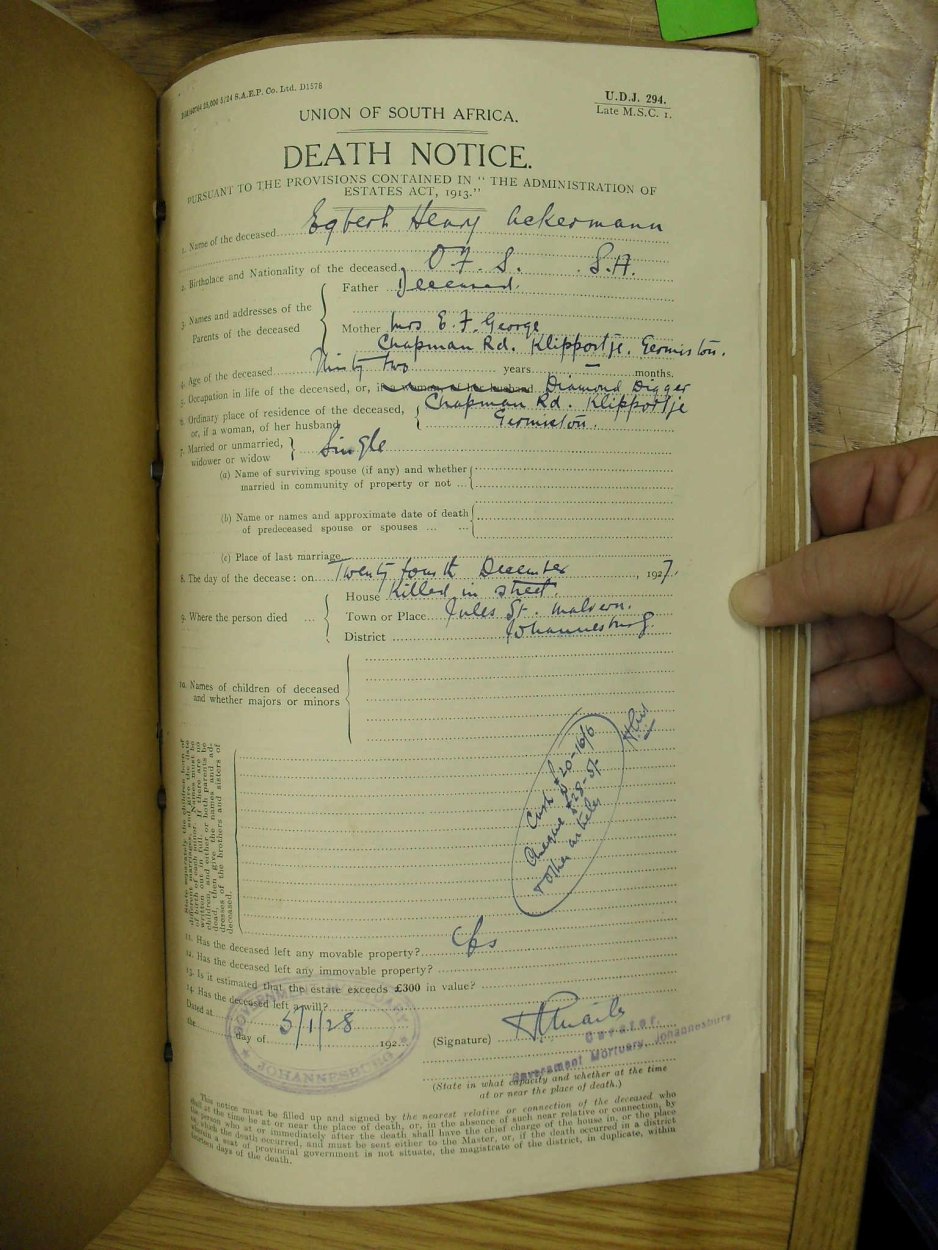 25,000 5/24 S.A.E.P. Co. Ltd. D1576
U.D.J. 294.
Late M.S.C. 1.
UNION OF SOUTH AFRICA.
DEATH NOTICE.
PURSUANT TO THE PROVISIONS CONTAINED IN "THE ADMINISTRATION OF
ESTATES ACT, 1913."
1. Name of the deceased Egbert Henry Ackermann
2. Birthplace and Nationality of the deceased O.F.S. S.A.
3. Names and addresses of the Parents of the deceased
Father Deceased.
Mother Mrs E. F. George
Chapman Rd. Klipportje. Germiston.
4. Age of the deceased Ninty two years — months.
5. Occupation in life of the deceased, or, if a woman, of her husband Diamond Digger
6. Ordinary place of residence of the deceased, Chapman Rd. Klipportje
or, if a woman, of her husband Germiston.
7. Married or unmarried, widower or widow Single
(a) Name of surviving spouse (if any) and whether
married in community of property or not ...
(b) Name or names and approximate date of death
of predeceased spouse or spouses ... ...
(c) Place of last marriage
8. The day of the decease: on Twenty fourth December, 1927.
9. Where the person died ...
House Killed in street.
Town or Place Jules St. Malvern.
District Johannesburg.
10. Names of children of deceased
and whether majors or minors
State separately the children born of
different marriages, and give the date
of birth of each minor. Names must be
written out in full. If there are no
children, and either or both parents be
dead, then give the names and ad-
dresses of the brothers and sisters of
deceased.
Cash £20-16/6
Cheque £28-5/-
+ Other articles
11. Has the deceased left any movable property? Yes
12. Has the deceased left any immovable property?
13. Is it estimated that the estate exceeds £300 in value?
14. Has the deceased left a will?
Dated at
the day of 192
5/1/28
GOVERNMENT MORTUARY
JOHANNESBURG
(Signature)
Government Mortuary, Johannesburg
(State in what capacity and whether at the time
at or near the place of death.)
This notice must be filled up and signed by the nearest relative or connection of the deceased who
shall at the time be at or near the place of death, or, in the absence of such near relative or connection, by
the person who at or immediately after the death shall have the chief charge of the house in, or the place
at which the death occurred, and must be sent either to the Master, or, if the death occurred in a district
wherein a seat of provincial government is not situate, the magistrate of the district, in duplicate, within
fourteen days of the death.